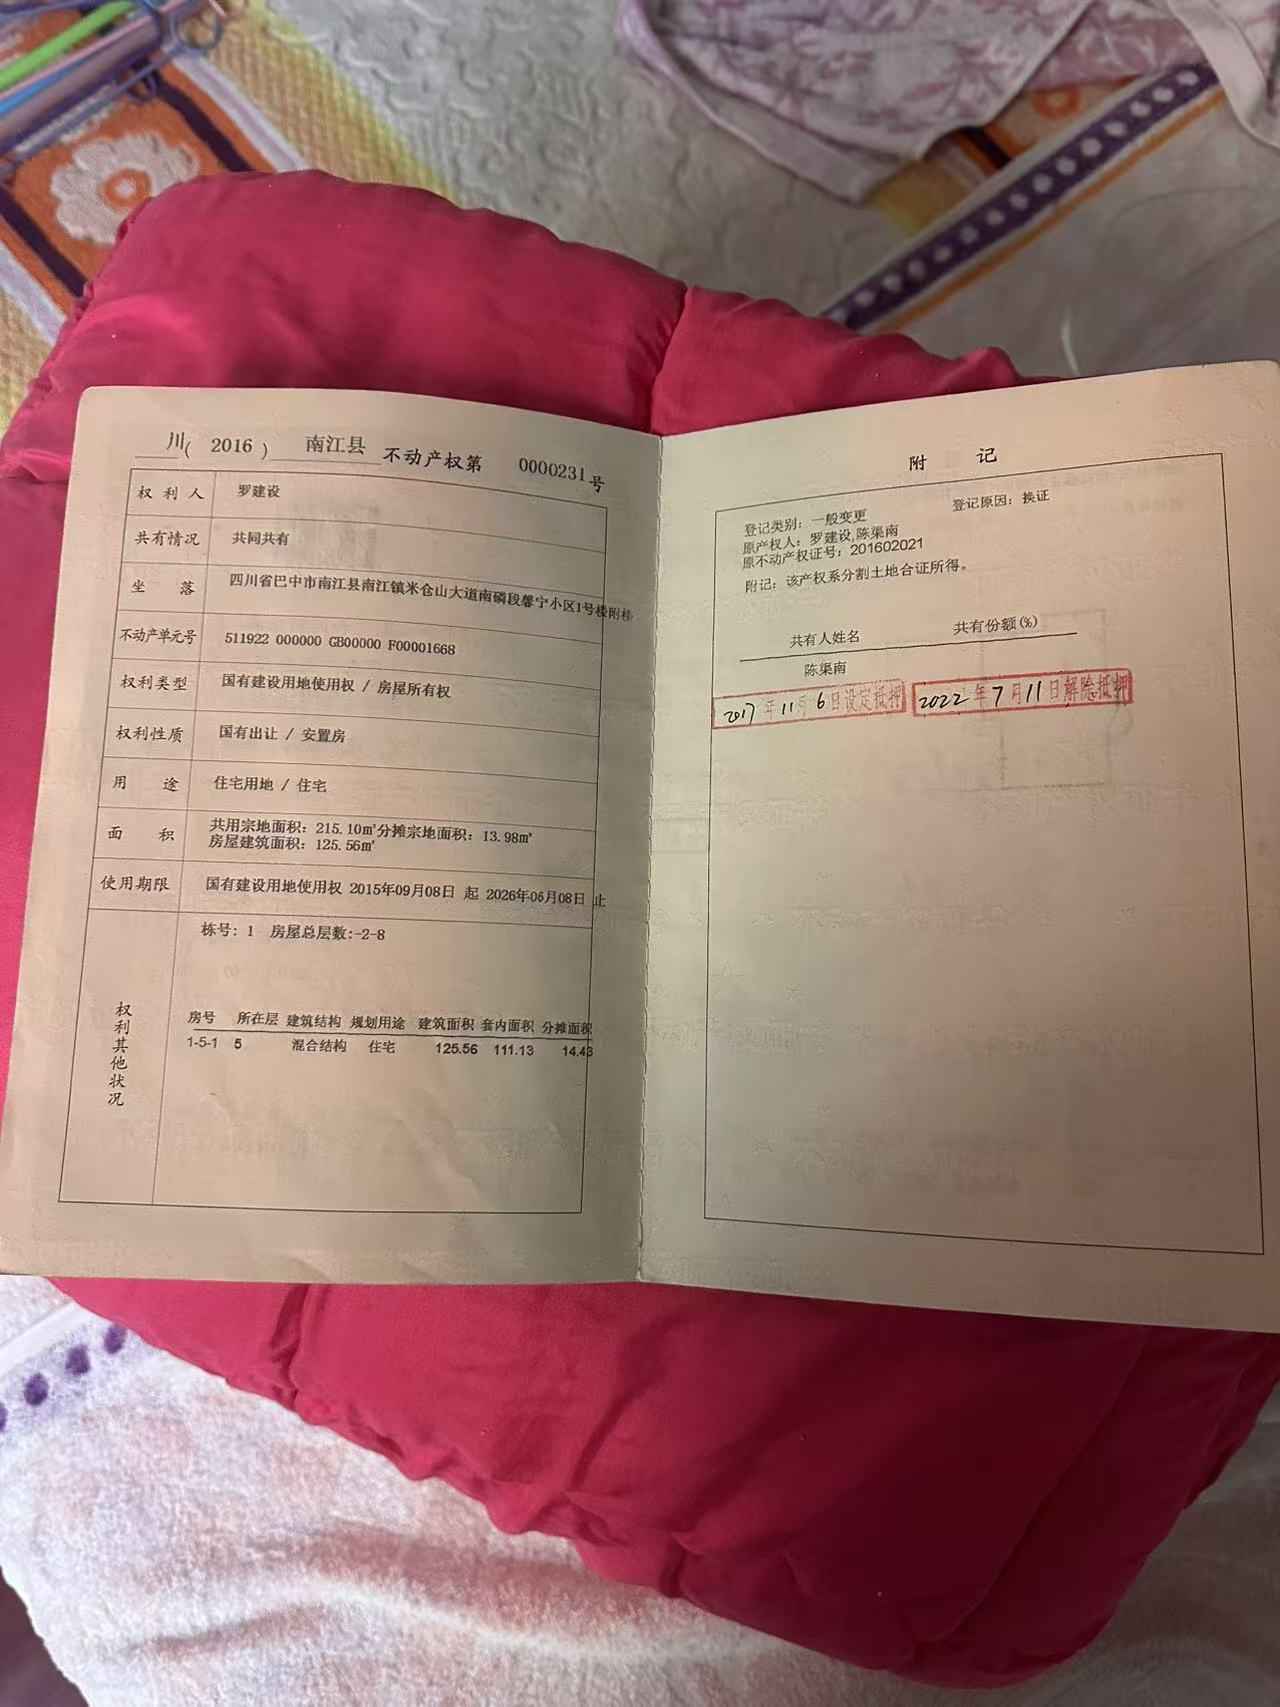 川( 2016 ) 南江县 不动产权第 0000231 号
权利人 罗建设
共有情况 共同共有
坐落 四川省巴中市南江县南江镇米仓山大道南磷段馨宁小区1号楼附楼
不动产单元号 511922 000000 GB00000 F00001668
权利类型 国有建设用地使用权 / 房屋所有权
权利性质 国有出让 / 安置房
用途 住宅用地 / 住宅
面积 共用宗地面积: 215.10㎡分摊宗地面积: 13.98㎡
房屋建筑面积: 125.56㎡
使用期限 国有建设用地使用权 2015年09月08日 起 2026年06月08日 止
权利其他状况
栋号: 1 房屋总层数:-2-8
房号 所在层 建筑结构 规划用途 建筑面积 套内面积 分摊面积
1-5-1 5 混合结构 住宅 125.56 111.13 14.43
附记
登记类别: 一般变更 登记原因: 换证
原产权人: 罗建设,陈渠南
原不动产权证号: 201602021
附记: 该产权系分割土地合证所得。
共有人姓名 共有份额(%)
陈渠南
2017年11月6日设定抵押 2022年7月11日解除抵押